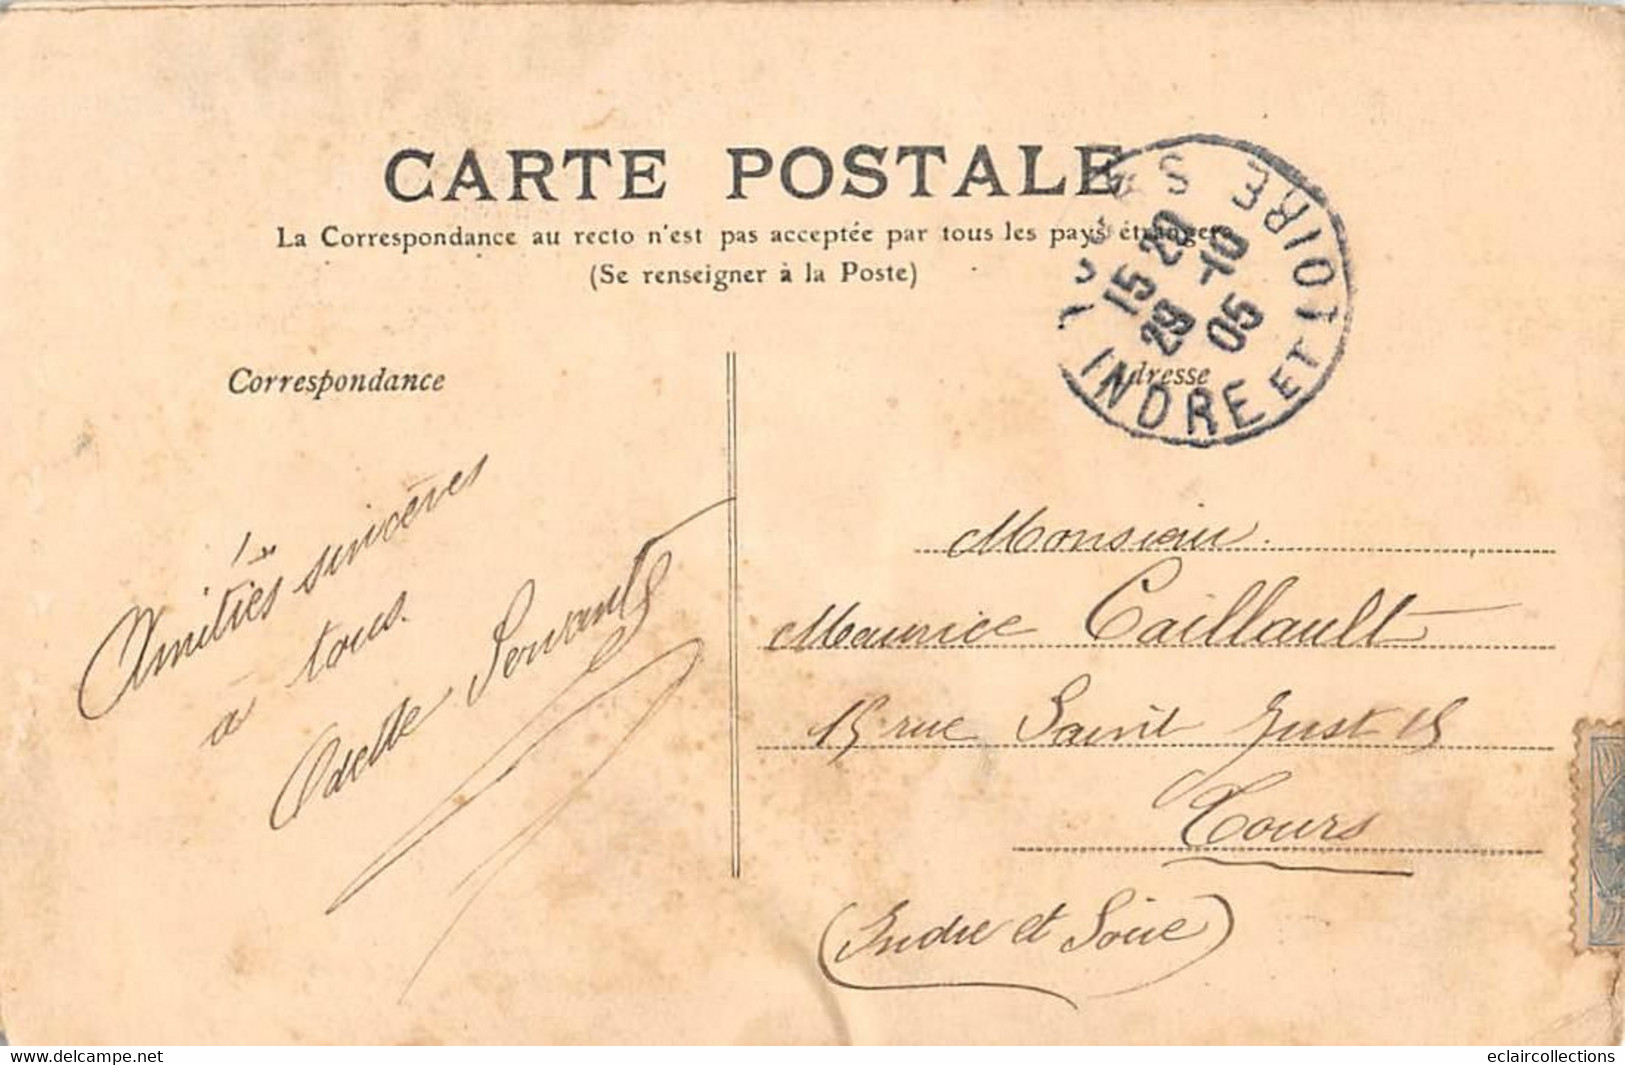 CARTE POSTALE
La Correspondance au recto n'est pas acceptée par tous les pays étrangers
(Se renseigner à la Poste)
15 20
29 -10
05
INDRE ET LOIRE
Correspondance
Adresse
Amitiés sincères
à tous.
Odette Servant
Monsieur
Maurice Caillault
15 rue Saint Just 15
Tours
(Indre et Loire)
https://www.delcampe.net
eclaircollections